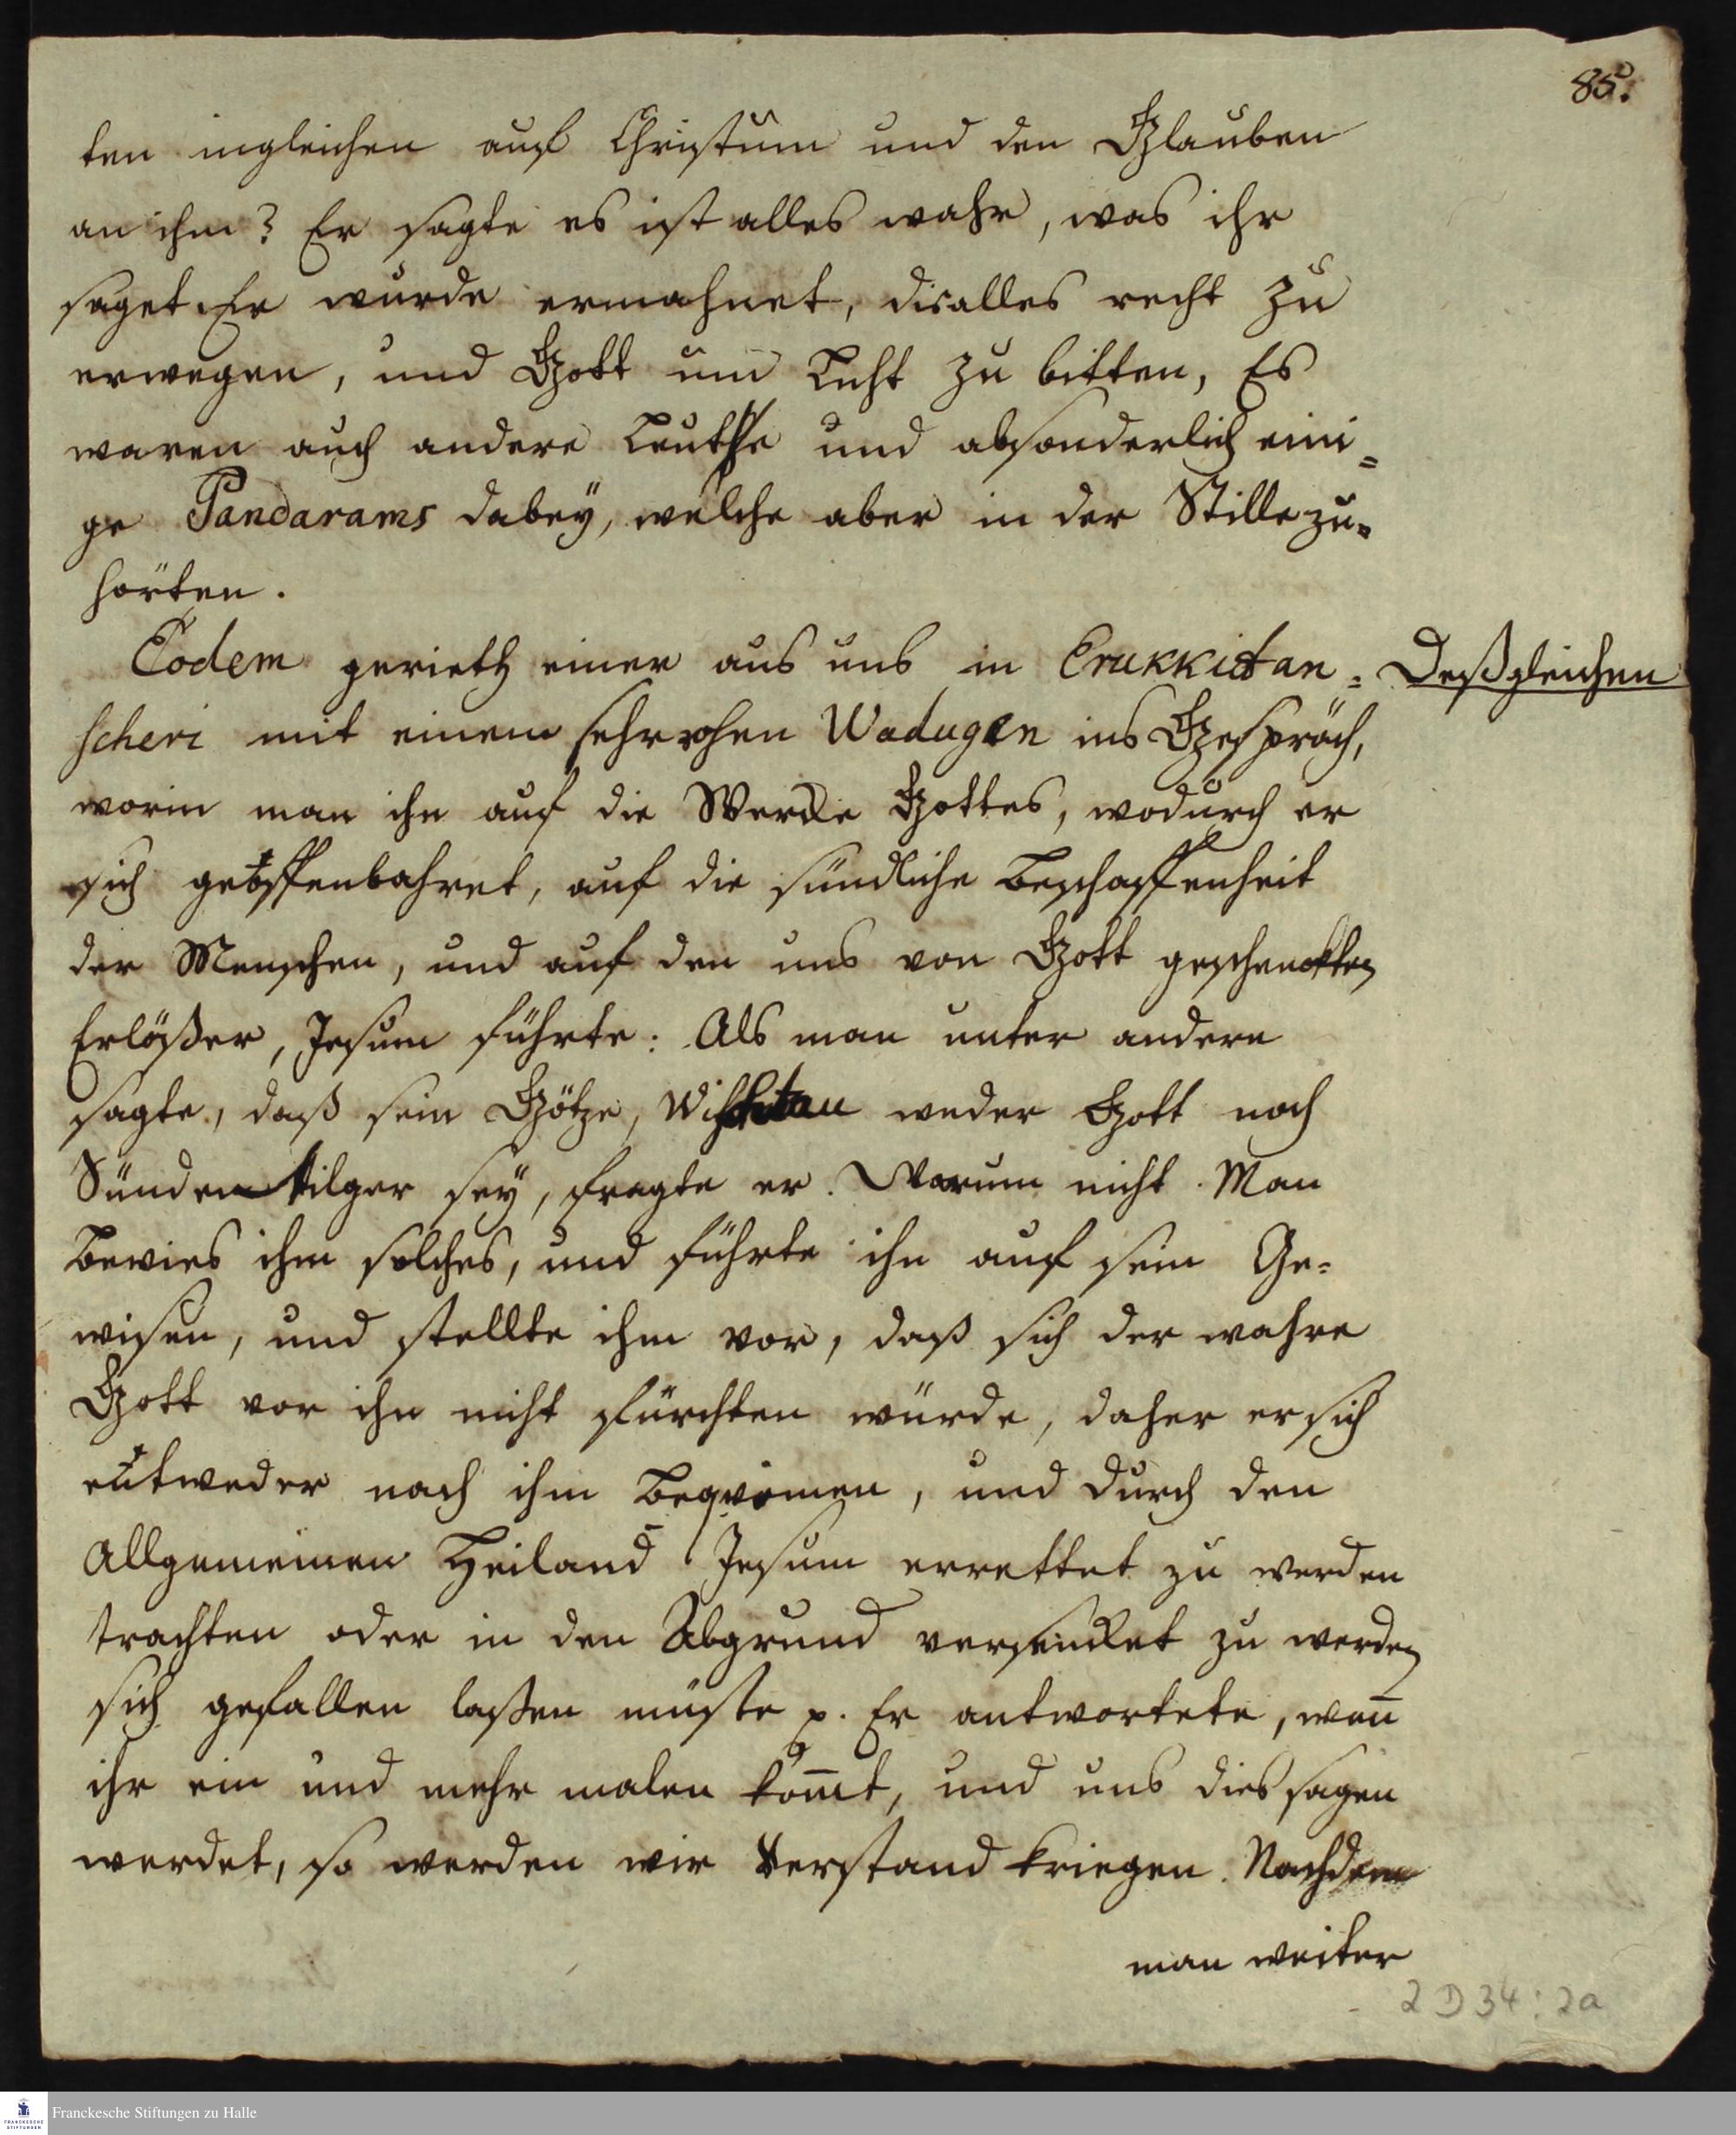 85.
ten ingleichen auf Christum und den Glauben
an ihm? Er sagte es ist alles wahr, was ihr
saget. Er wurde ermahnet, dis alles recht zu
erwegen, und Gott um Licht zu bitten, Es
waren auch andere Leuthe und absonderlich eini=
ge Pandarams dabey, welche aber in der Stille zu=
hörten.
Eodem gerieth einer aus uns in Erukkitan=
scheri mit einem sehr rohen Wadugen ins Gespräch,
Deßgleichen
worin man ihn auf die Wercke Gottes, wodurch er
sich geoffenbahret, auf die sündliche Beschaffenheit
der Menschen, und auf den uns von Gott geschenckten
Erlößer, Jesum führte: Als man unter andern
sagte, daß sein Götze, weder Gott noch
Sünden tilger sey, fragte er. Warum nicht. Man
bewies ihm solches, und führte ihn auf sein Ge=
wisen, und stellte ihm vor, daß sich der wahre
Gott vor ihn nicht fürchten würde, daher er sich
entweder nach ihm beqvemen, und durch den
Allgemeinen Heiland Jesum errettet zu werden
trachten oder in den Abgrund versencket zu werden
sich gefallen laßen müste p. Er antwortete, wen̄
ihr ein und mehr malen kom̄t, und uns dies sagen
werdet, so werden wir Verstand kriegen. Nachdem
man weiter
2 D 34 : 2a
Franckesche Stiftungen zu Halle
FRANCKESCHE STIFTUNGEN